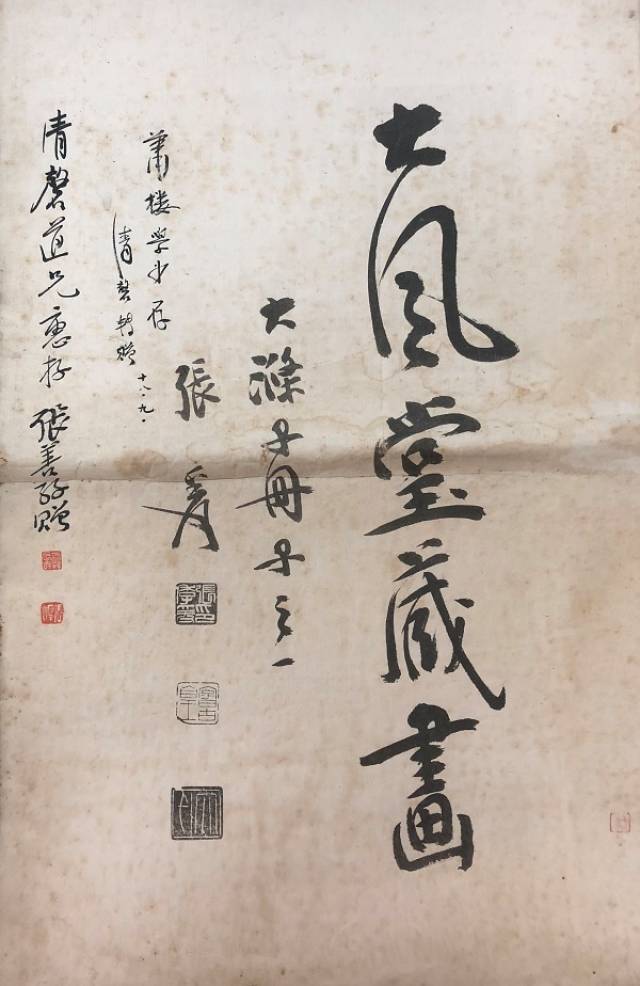 大風堂藏畫
大滌子冊子之一
張爰
蕭樓學弟存
清磬轉贈 十八.九.
清磬道兄惠存 張善孖贈
張季爰印